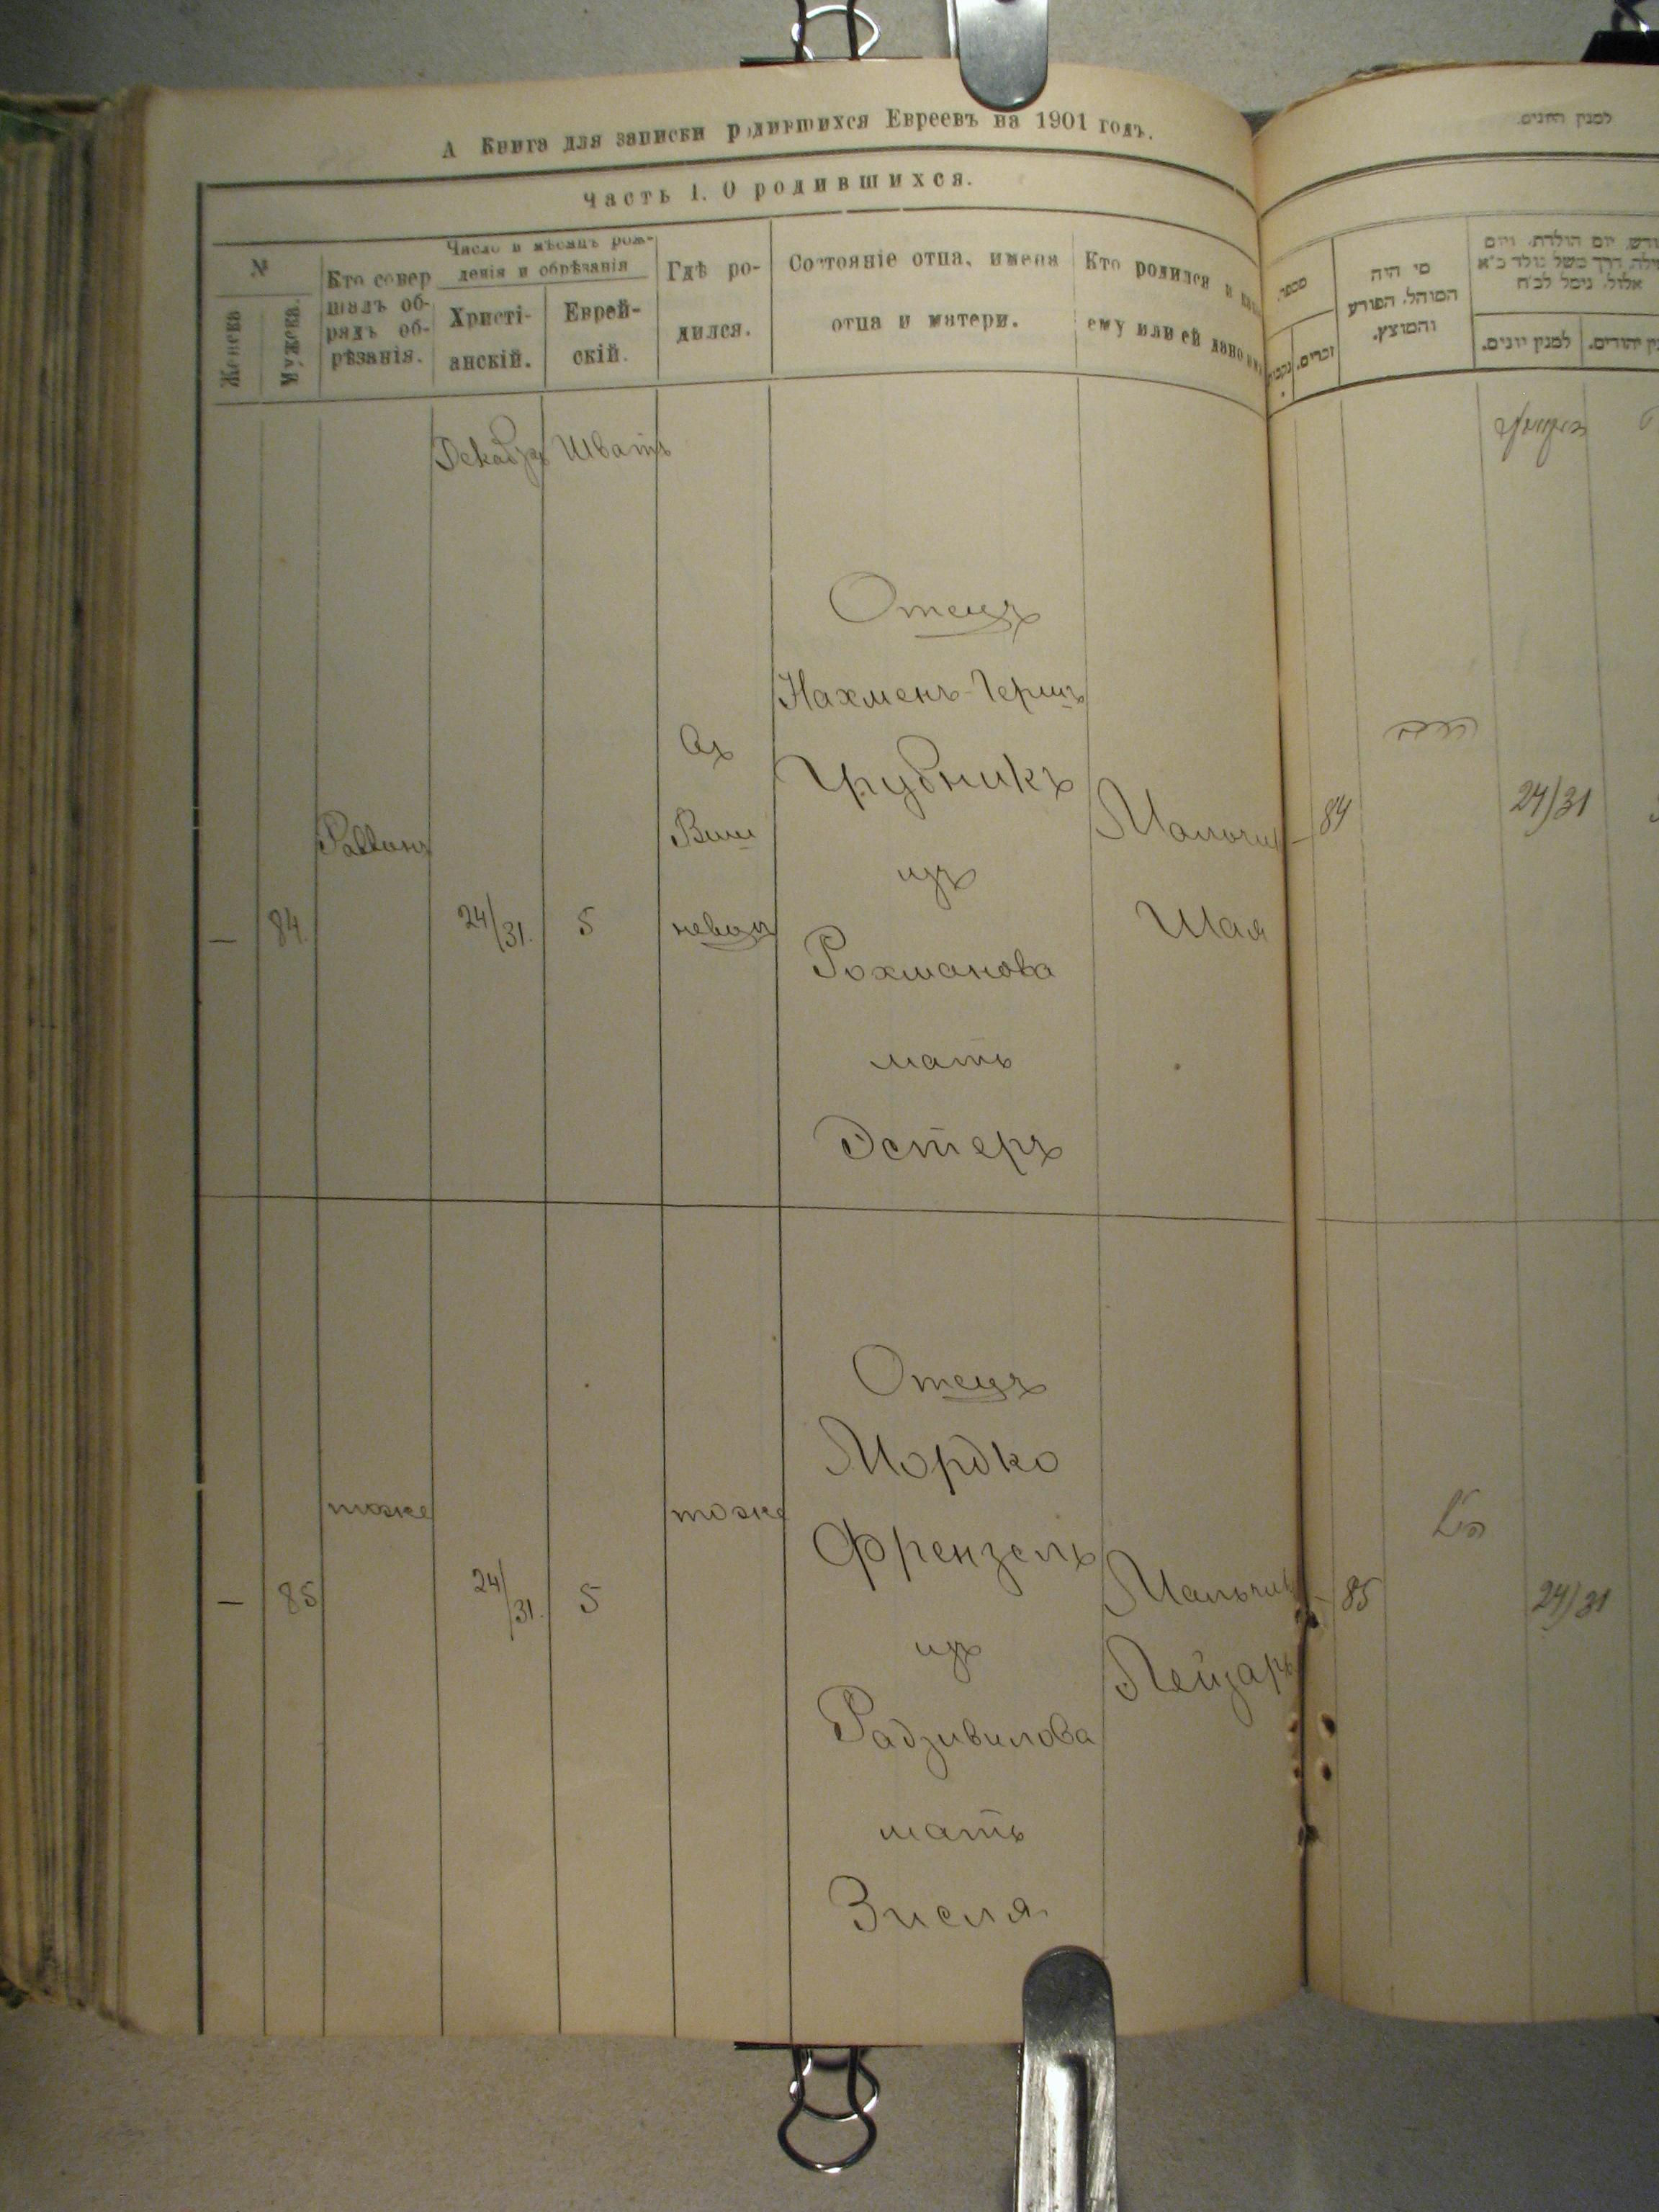 А Книга для записки родившихся Евреевъ на 1901 годъ.
Часть 1. О родившихся.
№
Женска
Мужеска.
Кто совер
шалъ об-
рядъ об-
рѣзанія.
Число и мѣсяцъ рож-
денія и обрѣзанія
Христі-
анскій.
Еврей-
скій.
Гдѣ ро-
дился.
Состояніе отца, имена
отца и матери.
Кто родился и какое
ему или ей дано имя
Декабрь
Шватъ
—
84.
Раввинъ
24/31.
5
Въ
Виш
невцѣ
Отецъ
Нахменъ-Герш
Грубникъ
изъ
Рохманова
мать
Эстеръ
Мальчик
Шая
—
85
тоже
24/31.
5
тоже
Отецъ
Мордко
Френзель
изъ
Радзивилова
мать
Зисля
Мальчикъ
Лейзаръ
למנין היונים.
מספר
נקבות
זכרים.
מי היה
המוהל, הפורע
והמוצץ.
יום הולדת, ויום
דרך משל נולד כ״א
אלול, נימל לכ״ח
למנין יונים.
יהודים.
—
84
24/31
—
85
24/31